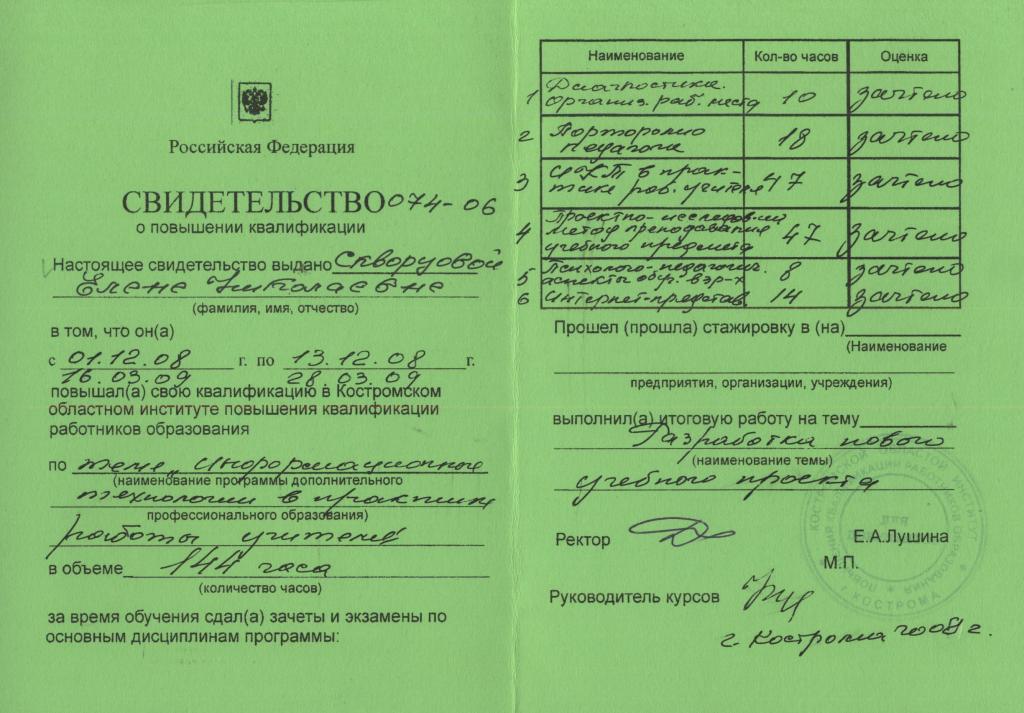 Российская Федерация
СВИДЕТЕЛЬСТВО 074-06
о повышении квалификации
Настоящее свидетельство выдано Скворцовой
Елене Николаевне
(фамилия, имя, отчество)
в том, что он(а)
с 01.12.08 г. по 13.12.08 г.
16.03.09 28.03.09
повышал(а) свою квалификацию в Костромском
областном институте повышения квалификации
работников образования
по теме „Информационные
(наименование программы дополнительного
технологии в практике
профессионального образования)
работы учителя
в объеме 144 часа
(количество часов)
за время обучения сдал(а) зачеты и экзамены по
основным дисциплинам программы:
Наименование Кол-во часов Оценка
1 Диагностика. организ. раб. места 10 зачтено
2 Портфолио педагога 18 зачтено
3 ИКТ в практике раб. учителя 47 зачтено
4 Проектно-исследов-й метод преподавания учебного предмета 47 зачтено
5 Психолого-педагогич. аспекты обр. вз-х 8 зачтено
6 Интернет-представ. 14 зачтено
Прошел (прошла) стажировку в (на)
(Наименование
предприятия, организации, учреждения)
выполнил(а) итоговую работу на тему
Разработка нового
(наименование темы)
учебного проекта
Ректор Е.А.Лушина
М.П.
Руководитель курсов
г. Кострома 2009 г.